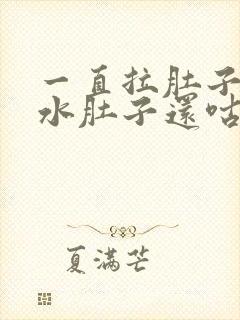 一直拉肚子
水肚子還咕
夏满芒